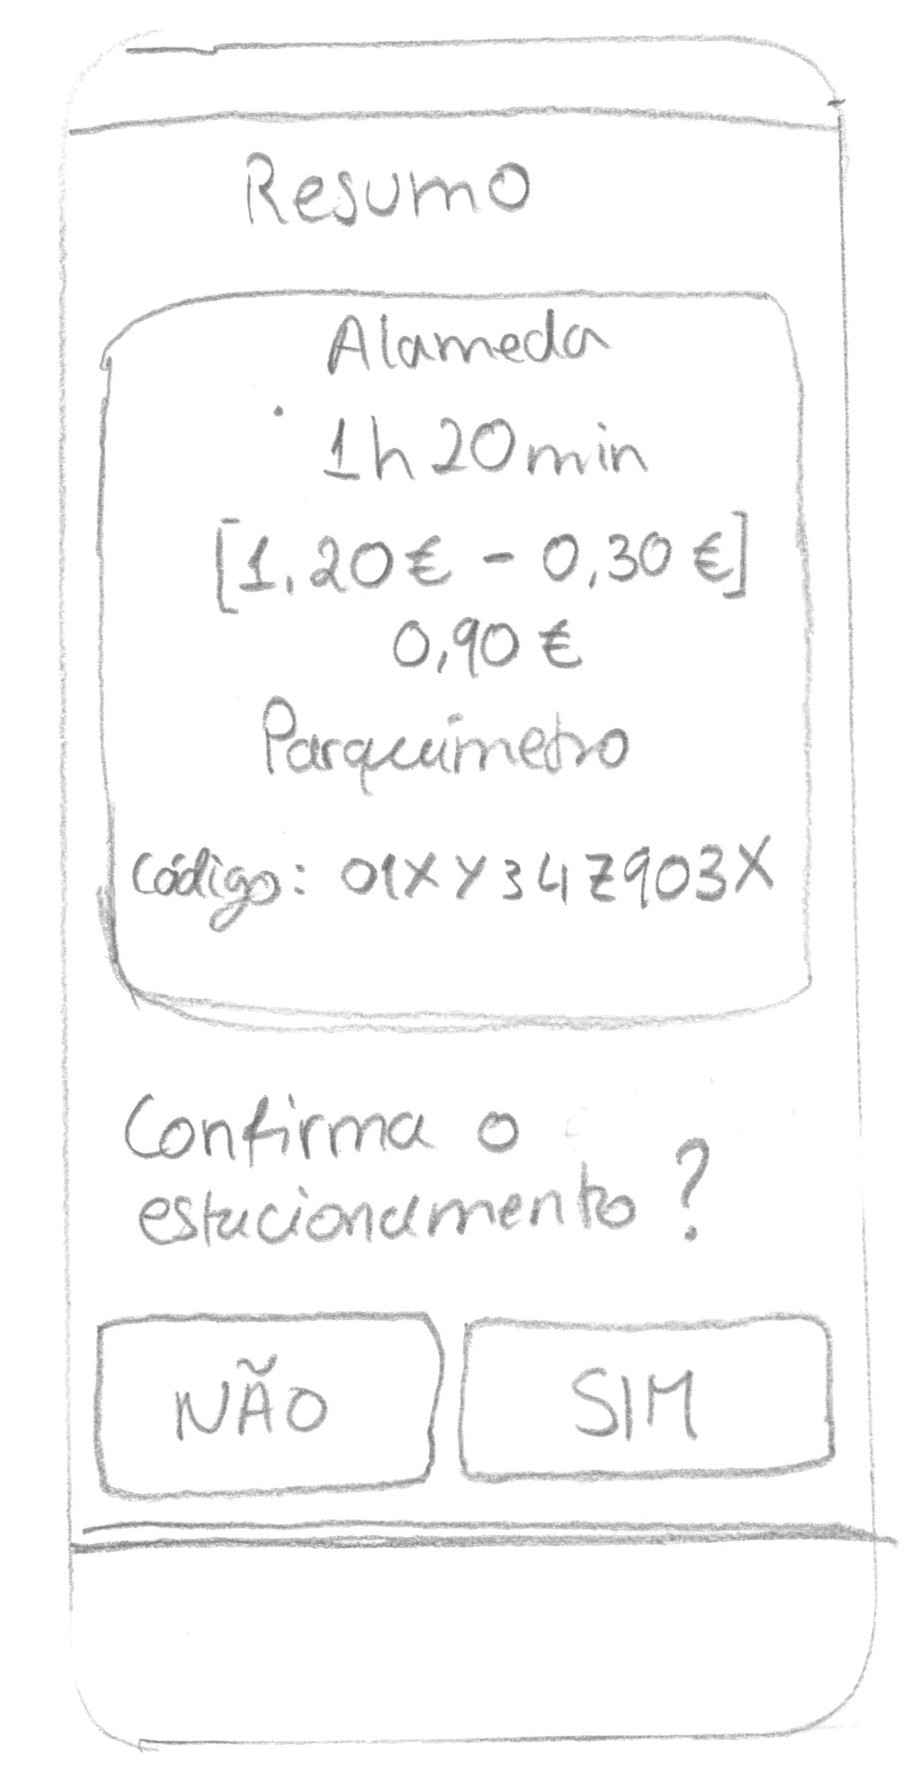 Resumo
Alameda
1h20min
[1,20€ - 0,30€]
0,90€
Parquímetro
Código: 01XY34Z903X
Confirma o
estacionamento?
NÃO
SIM